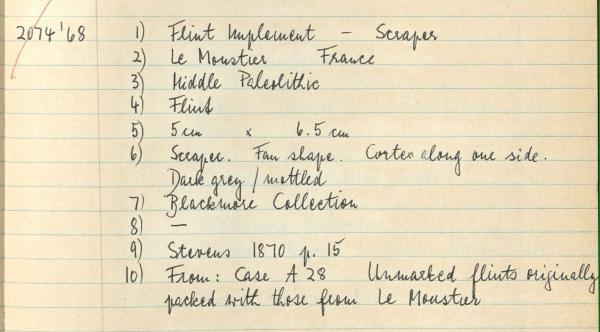 2074'68 1) Flint Implement - Scraper
2) Le Moustier France
3) Middle Paleolithic
4) Flint
5) 5 cm x 6.5 cm
6) Scraper. Fan shape. Cortex along one side.
Dark grey / mottled
7) Blackmore Collection
8) —
9) Stevens 1870 p. 15
10) From: Case A 28 Unmarked flints originally
packed with those from Le Moustier